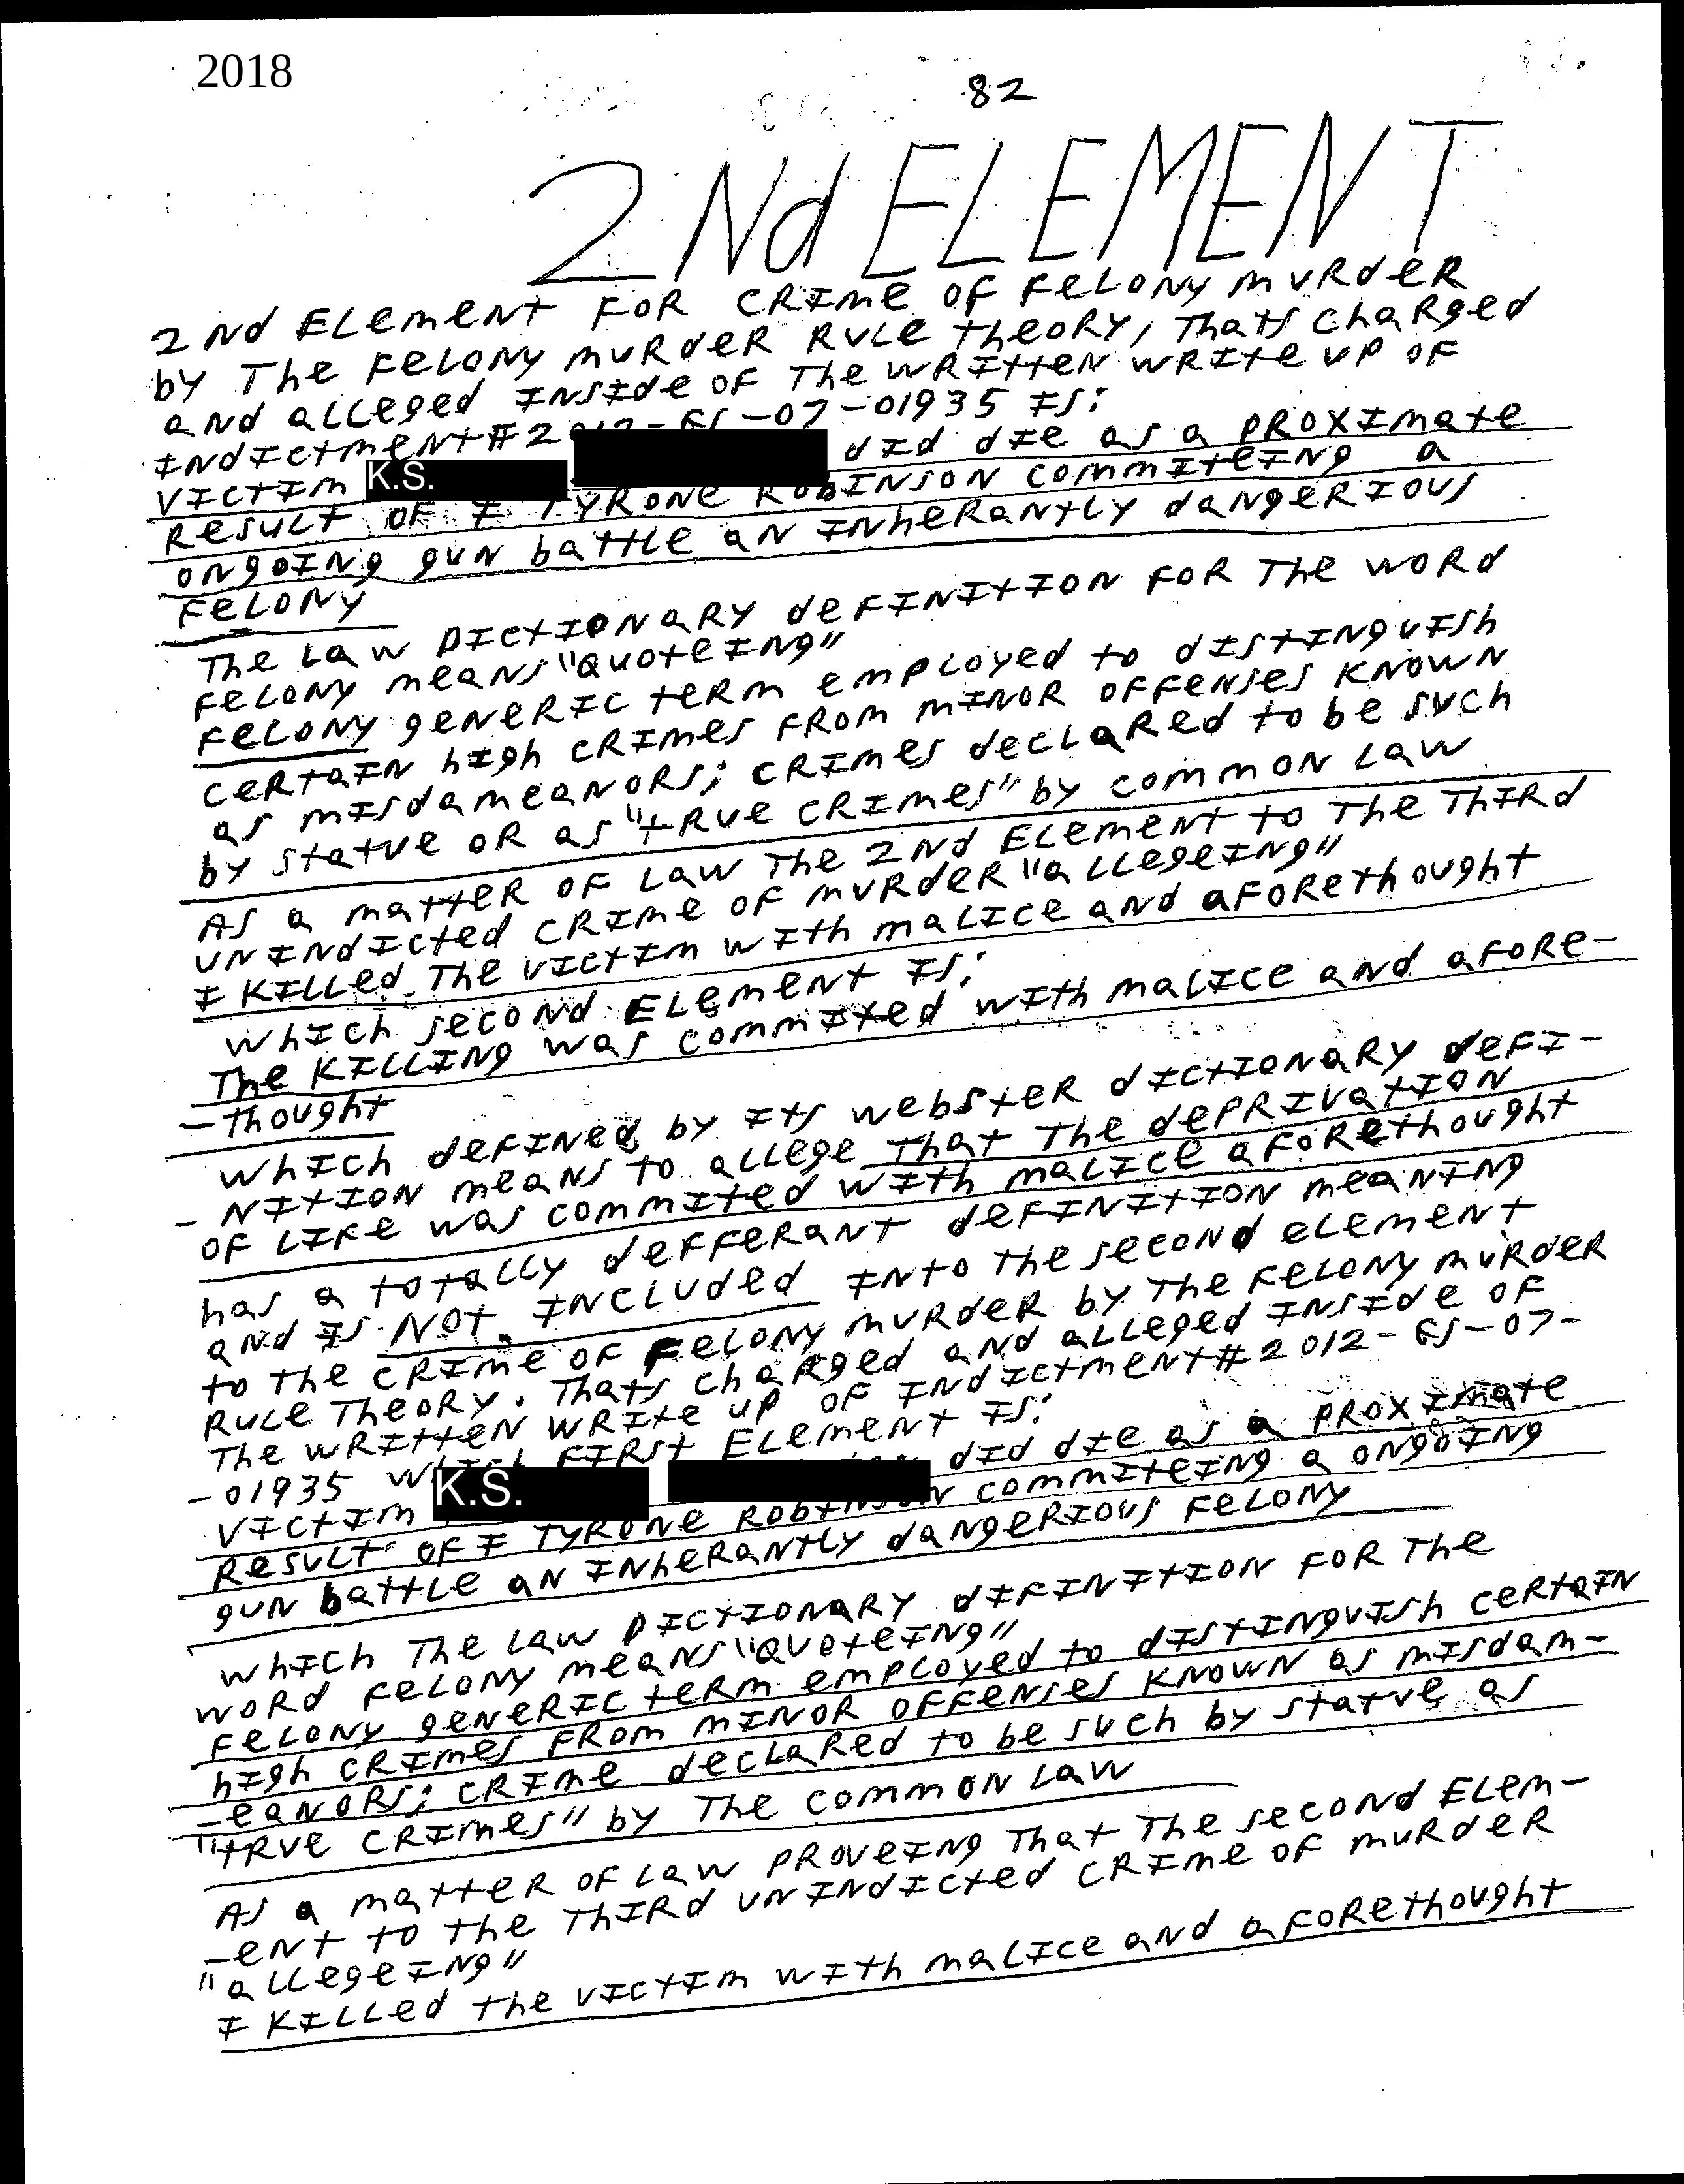 2018
82
2Nd ELEMENT
2Nd ELemeNt FOR CRIme OF FeLONy muRdeR
by The FeLONy muRdeR RuLe theORy, Thats ChaRged
aNd aLLeged INsIde OF The wRItteN wRIte up OF
INdIctmeNt#2012-GS-07-01935 Is:
VIctIm K.S. dId dIe as a pROxImate
ResuLt OF I TyRONe RObINsON commIteINg a
oNgOINg guN battLe aN INheRaNtLy daNgeRIOus
FeLONy
The Law DIctIONaRy deFINItION FOR The woRd
FeLONy meaNs "QuoteINg"
FeLONy geNeRIc teRm empLoyed to dIstINguIsh
ceRtaIN hIgh cRImes FRom mINOR OFFeNses KNOWN
as mIsdameaNORs; CRImes decLaRed to be such
by statue OR as "tRue CRImes" by commON Law
As a matteR OF Law The 2Nd ELemeNt to The ThIRd
uNINdIcted CRIme OF muRdeR "aLLegeINg"
I KILLed The vIctIm wIth maLIce aNd aFORethought
whIch secoNd ELemeNt Is:
The KILLINg was commIted wIth maLIce aNd aFORe-
-thought
whIch deFINed by Its websteR dIctIONaRy deFI-
-NItION meaNs to aLLege That The depRIvatION
OF LIFe was commIted wIth maLIce aFORethought
has a totaLLy deFFeRaNt deFINItION meaNINg
aNd Is NOt INcLuded INto the secoNd eLemeNt
to the CRIme OF FeLONy muRdeR by The FeLONy muRdeR
RuLe TheORy. Thats chaRged aNd aLLeged INsIde OF
The wRItteN wRIte up OF INdIctmeNt#2012-GS-07-
-01935 whIch FIRst ELemeNt Is:
VIctIm K.S. dId dIe as a pROxImate
ResuLt OF I TyRONe RobINsON commIteINg a ONgOINg
guN battLe aN INheRaNtLy daNgeRIOus FeLONy
whIch The Law DIctIONaRy dIFINItION FOR The
woRd FeLONy meaNs "QuoteINg"
FeLONy geNeRIc teRm empLoyed to dIstINguIsh ceRtaIN
hIgh CRImes FRom mINOR OFFeNses KNOWN as mIsdam-
-eaNORs; CRIme decLaRed to be such by statue as
"tRue CRImes" by The commON Law
As a matteR OF Law pROveINg That The secoNd ELem-
-eNt to the ThIRd uNINdIcted CRIme OF muRdeR
"aLLegeINg"
I KILLed the vIctIm wIth maLIce aNd aFORethought